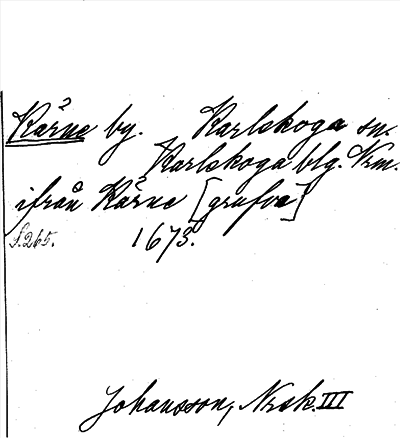 Kärne by. Karlskoga sn.
Karlskoga blg. Vrm.
ifrån Kärne [grufva]
s. 265. 1673.
Johansson, Norsk. III